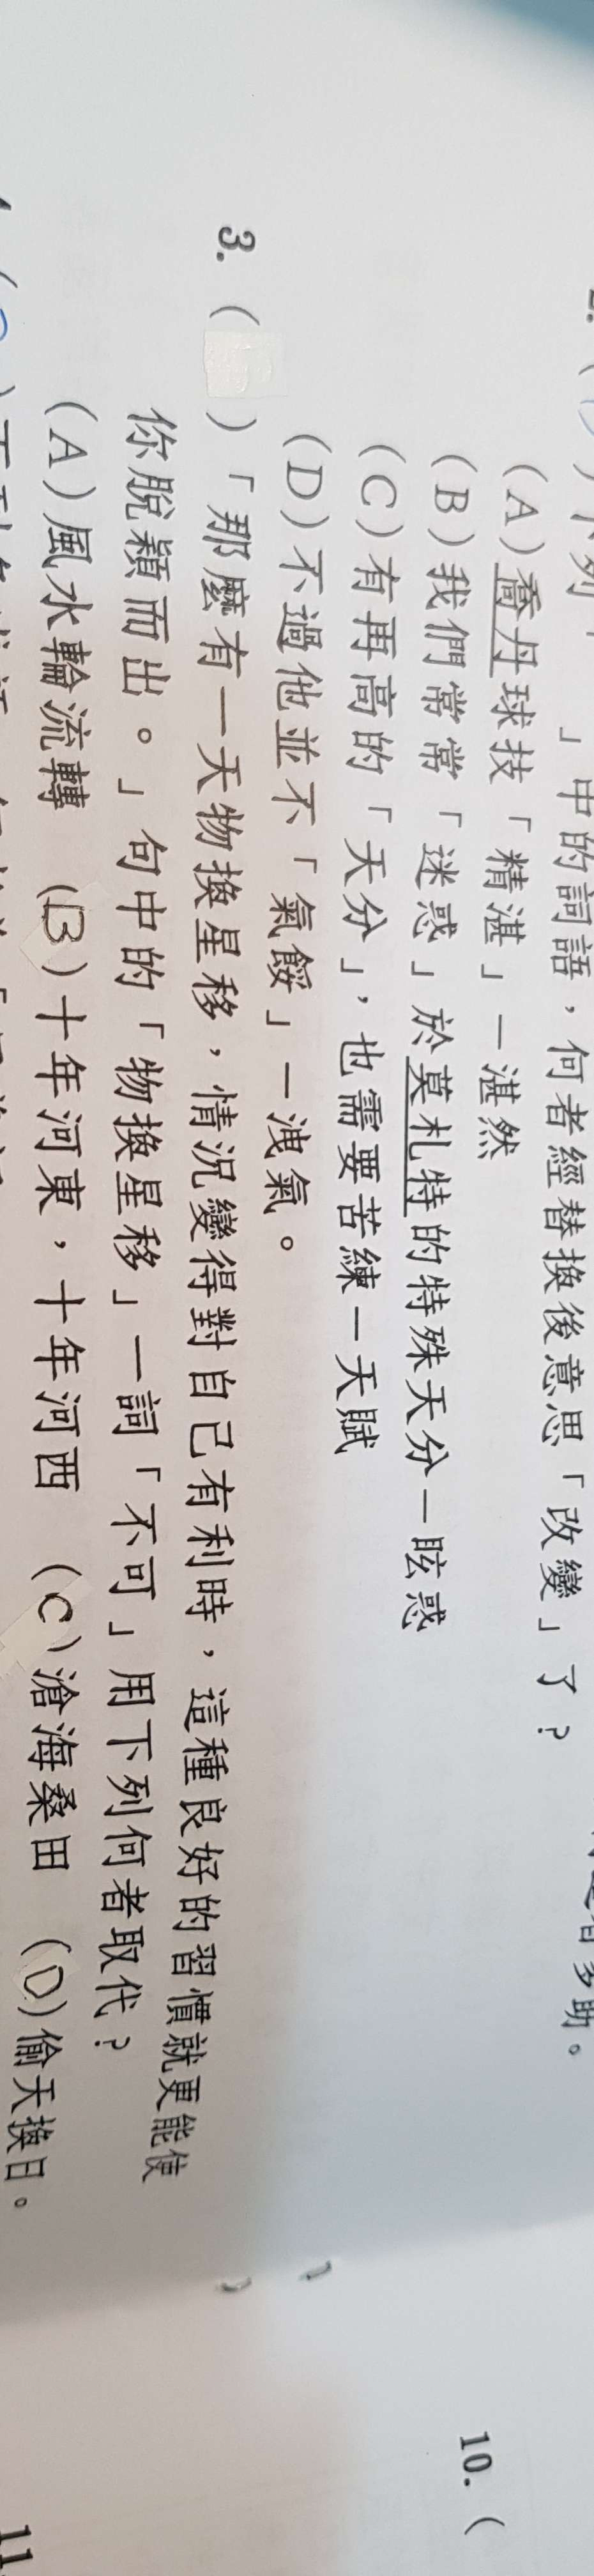 」中的詞語，何者經替換後意思「改變」了？
(A)喬丹球技「精湛」—湛然
(B)我們常常「迷惑」於莫札特的特殊天分—眩惑
(C)有再高的「天分」，也需要苦練—天賦
(D)不過他並不「氣餒」—洩氣。
3.( )「那麼有一天物換星移，情況變得對自己有利時，這種良好的習慣就更能使
你脫穎而出。」句中的「物換星移」一詞「不可」用下列何者取代？
(A)風水輪流轉 (B)十年河東，十年河西 (C)滄海桑田 (D)偷天換日。
10.(
11